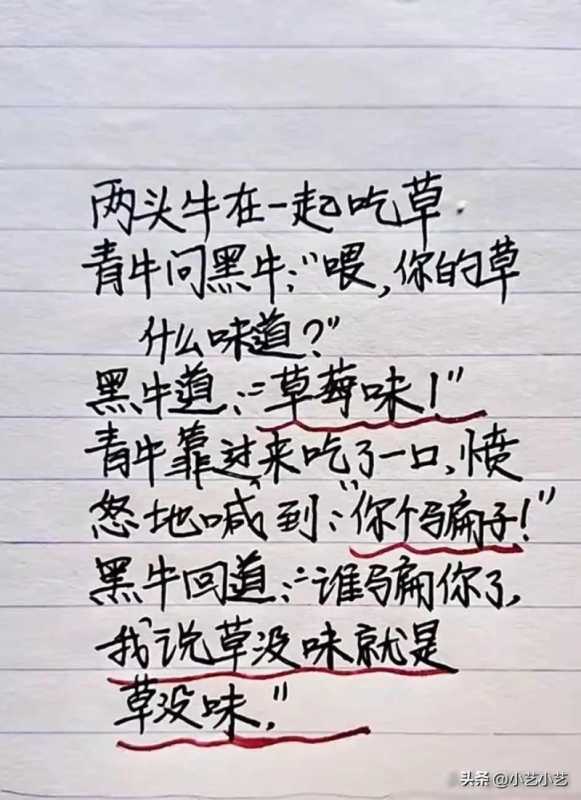 两头牛在一起吃草.
青牛问黑牛:"喂,你的草
什么味道?"
黑牛道:"草莓味!"
青牛靠过来吃了一口,愤
怒地喊到:"你个骗子!"
黑牛回道:"谁骗你了,
我说草没味就是
草没味,"
头条 @小艺小艺